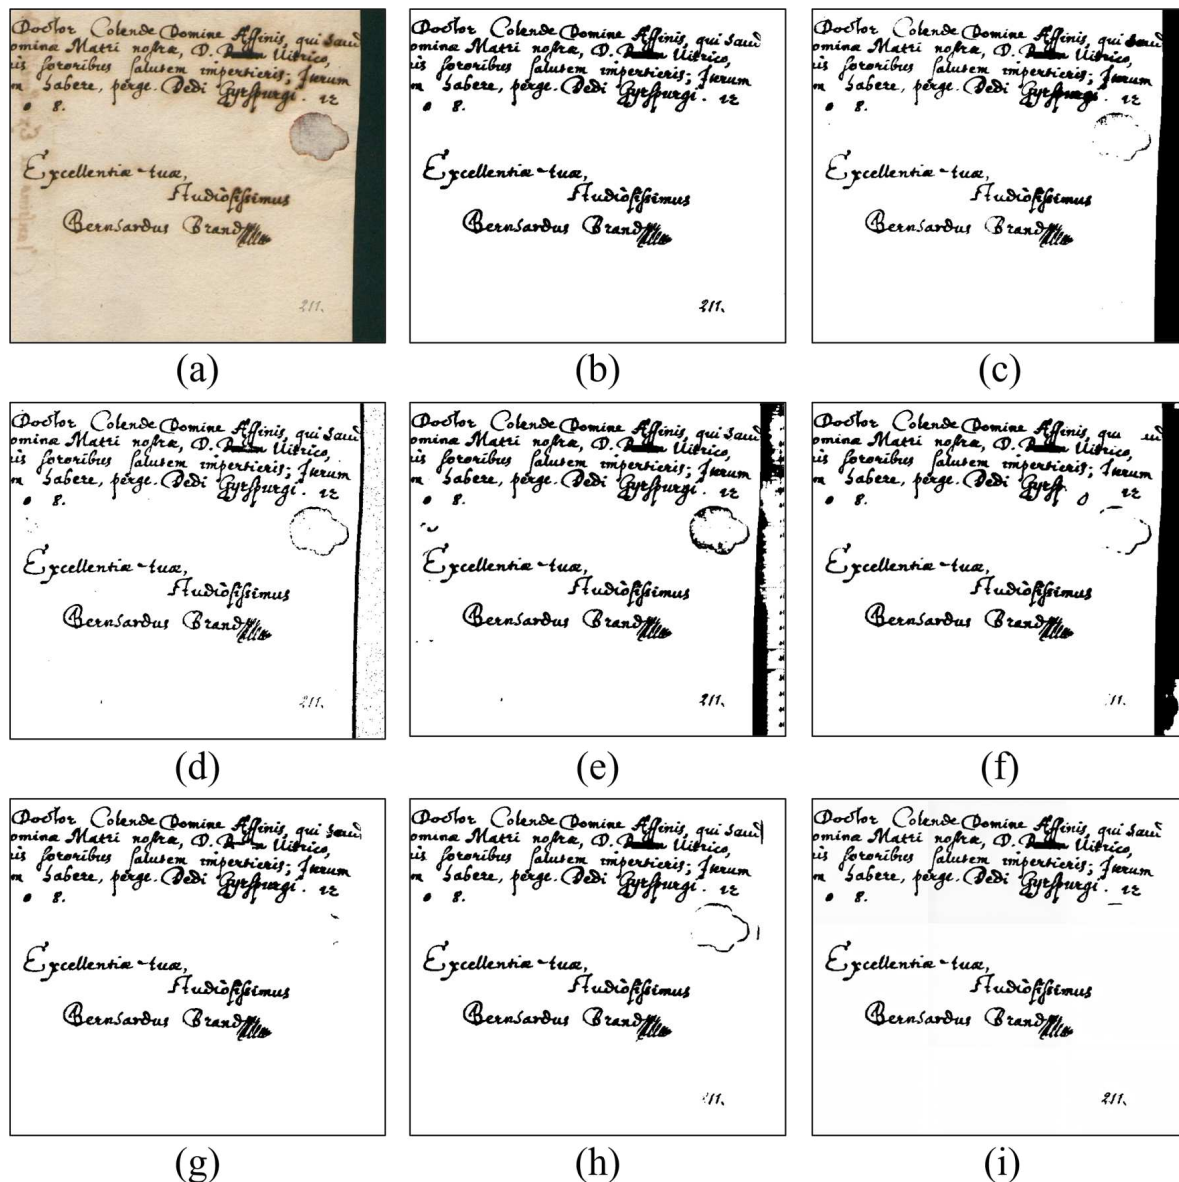 Doctor Colende Domine Affinis, qui
Matri nostræ, D. Uitrico,
sororibus salutem impertieris; Iterum
habere, perge. Dedi Gyrspurgi. 12
8.
Excellentiæ tuæ,
Studiosissimus
Bernhardus Brand
211.
(a)
Doctor Colende Domine Affinis, qui
Matri nostræ, D. Uitrico,
sororibus salutem impertieris; Iterum
habere, perge. Dedi Gyrspurgi. 12
8.
Excellentiæ tuæ,
Studiosissimus
Bernhardus Brand
211.
(b)
Doctor Colende Domine Affinis, qui
Matri nostræ, D. Uitrico,
sororibus salutem impertieris; Iterum
habere, perge. Dedi 12
8.
Excellentiæ tuæ,
Studiosissimus
Bernhardus Brand
(c)
Doctor Colende Domine Affinis, qui
Matri nostræ, D. Uitrico,
sororibus salutem impertieris; Iterum
habere, perge. Dedi Gyrspurgi. 12
8.
Excellentiæ tuæ,
Studiosissimus
Bernhardus Brand
211.
(d)
Doctor Colende Domine Affinis, qui
Matri nostræ, D. Uitrico,
sororibus salutem impertieris; Iterum
habere, perge. Dedi Gyrspurgi. 12
8.
Excellentiæ tuæ,
Studiosissimus
Bernhardus Brand
211.
(e)
Doctor Colende Domine Affinis, qu
Matri nostræ, D. Uitrico,
sororibus salutem impertieris; Iterum
habere, perge. Dedi 12
8.
Excellentiæ tuæ,
Studiosissimus
Bernhardus Brand
11.
(f)
Doctor Colende Domine Affinis, qui
Matri nostræ, D. Uitrico,
sororibus salutem impertieris; Iterum
habere, perge. Dedi Gyrspurgi. 12
8.
Excellentiæ tuæ,
Studiosissimus
Bernhardus Brand
(g)
Doctor Colende Domine Affinis, qui
Matri nostræ, D. Uitrico,
sororibus salutem impertieris; Iterum
habere, perge. Dedi Gyrspurgi. 12
8.
Excellentiæ tuæ,
Studiosissimus
Bernhardus Brand
11.
(h)
Doctor Colende Domine Affinis, qui
Matri nostræ, D. Uitrico,
sororibus salutem impertieris; Iterum
habere, perge. Dedi Gyrspurgi. 12
8.
Excellentiæ tuæ,
Studiosissimus
Bernhardus Brand
211.
(i)